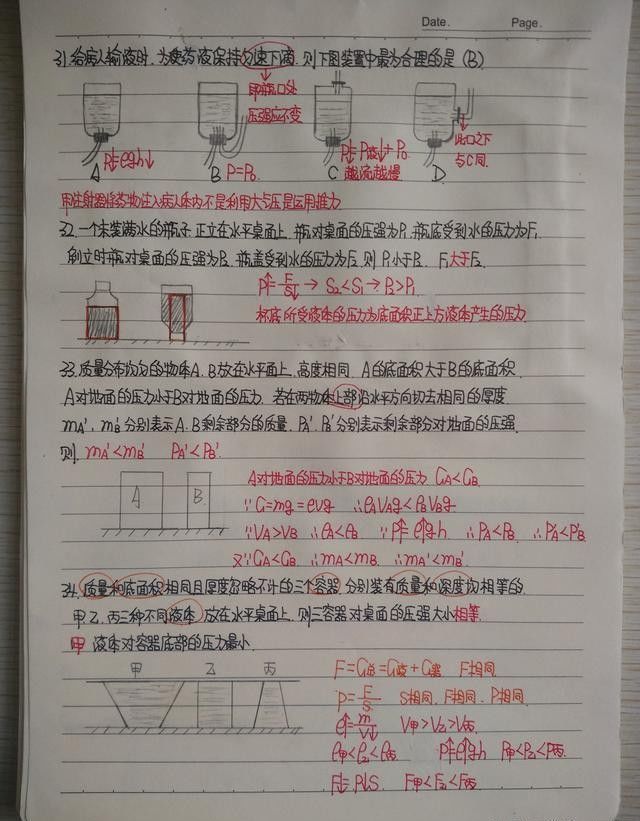 Date. Page.
31. 给病人输液时,为使药液保持匀速下滴,则下图装置中最为合理的是(B)
即瓶口处
压强应不变
A P↓=ρgh↓
B P=P₀
C P↓=P液↓+P₀
越流越慢
D 此口之下
与C同
用注射器将药物注入病人体内不是利用大气压是运用推力
32. 一个未装满水的瓶子,正立在水平桌面上,瓶对桌面的压强为P₁,瓶底受到水的压力为F₁
倒立时瓶对桌面的压强为P₂,瓶盖受到水的压力为F₂,则P₁小于P₂ F₁大于F₂
P↑=F/S↓→S₂<S₁→P₂>P₁
杯底所受液体的压力为底面积正上方液体产生的压力
33. 质量分布均匀的物体A、B放在水平面上,高度相同,A的底面积大于B的底面积
A对地面的压力小于B对地面的压力,若在两物体上部沿水平方向切去相同的厚度
mA′、mB′分别表示A、B剩余部分的质量,PA′、PB′分别表示剩余部分对地面的压强,
则 mA′<mB′ PA′<PB′
A B
A对地面的压力小于B对地面的压力 GA<GB
∵G=mg=ρvg ∴ρAVAg<ρBVBg
∵VA>VB ∴ρA<ρB ∵P↑=ρ↑gh ∴PA<PB ∴PA′<PB′
又∵GA<GB ∴mA<mB ∴mA′<mB′
34. 质量和底面积相同且厚度忽略不计的三个容器,分别装有质量和深度均相等的
甲、乙、丙三种不同液体,放在水平桌面上,则三容器对桌面的压强大小相等
甲 液体对容器底部的压力最小
甲 乙 丙
F=G总=G液+G器 F相同
P=F/S S相同,F相同,P相同
ρ↑=m/V↓ V甲>V乙>V丙
ρ甲<ρ乙<ρ丙 P↑=ρ↑gh P甲<P乙<P丙
F↓=P↓S F甲<F乙<F丙